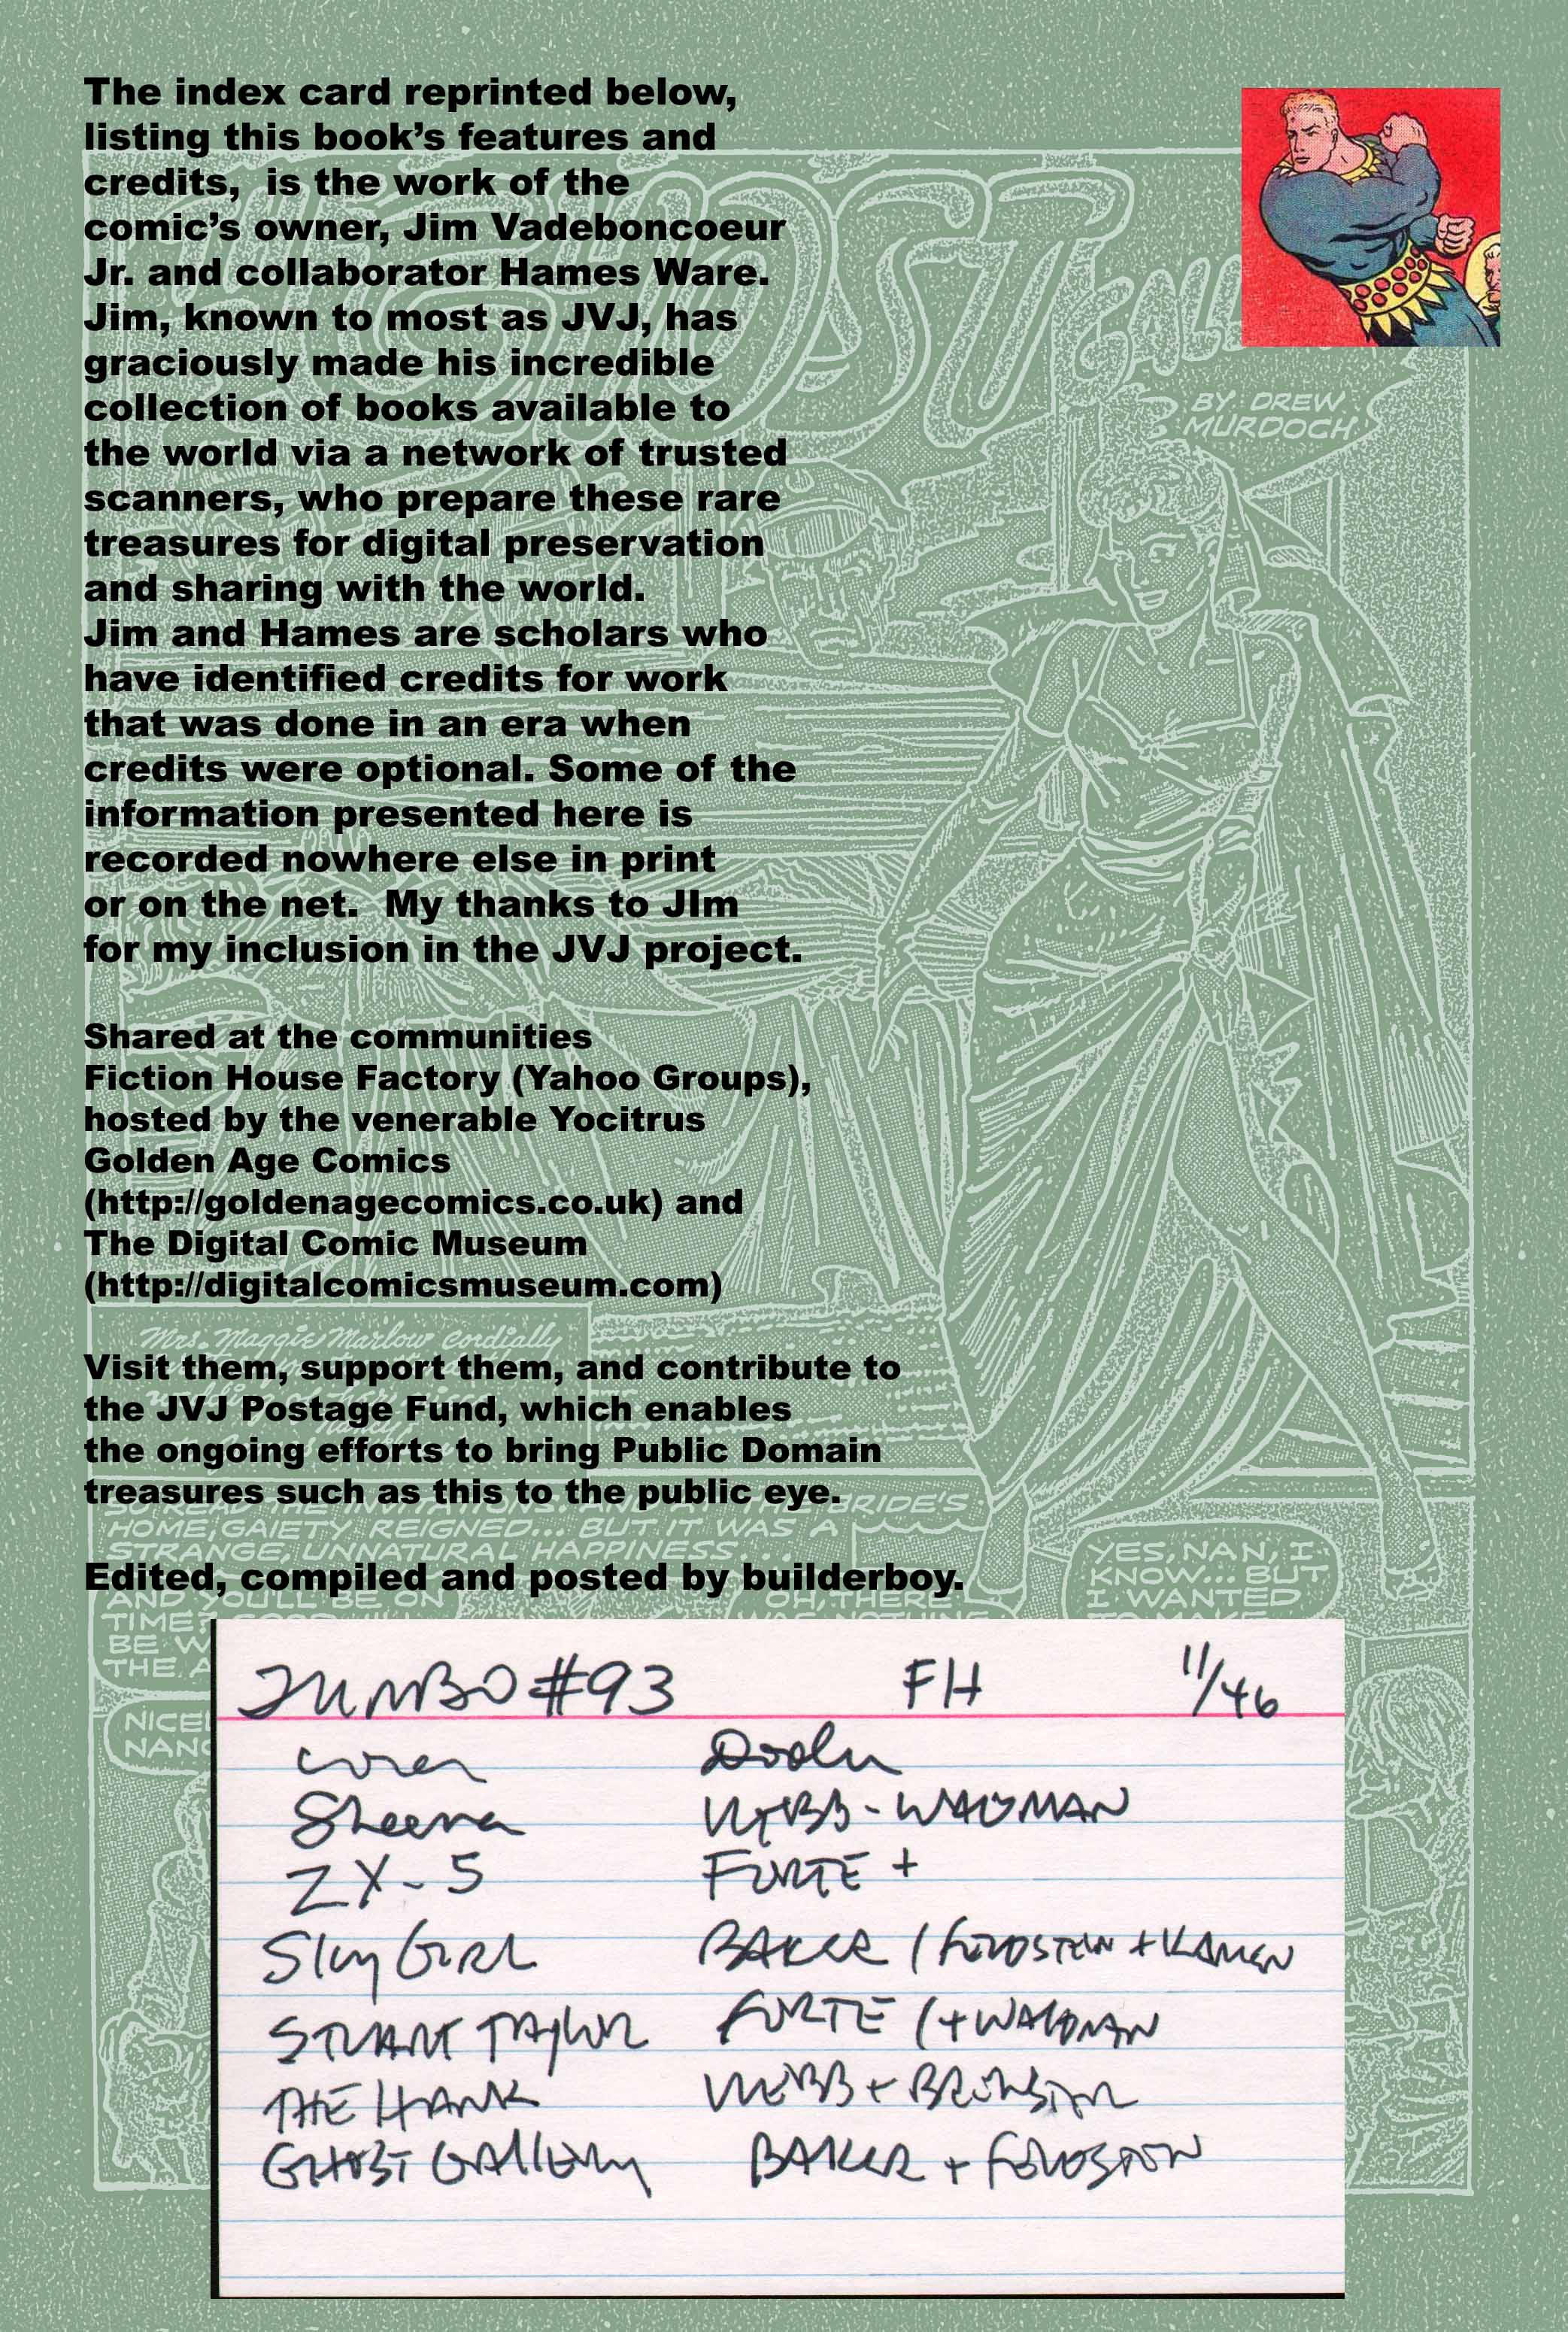 The index card reprinted below,
listing this book's features and
credits,  is the work of the
comic's owner, Jim Vadeboncoeur
Jr. and collaborator Hames Ware.
Jim, known to most as JVJ, has
graciously made his incredible
collection of books available to
the world via a network of trusted
scanners, who prepare these rare
treasures for digital preservation
and sharing with the world.
Jim and Hames are scholars who
have identified credits for work
that was done in an era when
credits were optional. Some of the
information presented here is
recorded nowhere else in print
or on the net.  My thanks to JIm
for my inclusion in the JVJ project.
GHOST
BY DREW
MURDOCH
Shared at the communities
Fiction House Factory (Yahoo Groups),
hosted by the venerable Yocitrus
Golden Age Comics
(http://goldenagecomics.co.uk) and
The Digital Comic Museum
(http://digitalcomicsmuseum.com)
Mrs. Maggie Marlow cordially
Visit them, support them, and contribute to
the JVJ Postage Fund, which enables
the ongoing efforts to bring Public Domain
treasures such as this to the public eye.
BRIDE'S
HOME, GAIETY REIGNED... BUT IT WAS A
STRANGE, UNNATURAL HAPPINESS...
Edited, compiled and posted by builderboy.
AND YOU'LL BE ON
TIME
BE W
THE A
OH, THERE
YES, NAN, I
KNOW... BUT
I WANTED
NICE
NANC
JUMBO #93 FH 11/46
cover Doolin
Sheena WEBB - WALDMAN
ZX-5 FORTE +
Sky GIRL BAKER / FELDSTEIN + KAMEN
STUART TAYLOR FORTE / + WALDMAN
THE HAWK WEBB +
GHOST GALLERY BAKER + FELDSTEIN